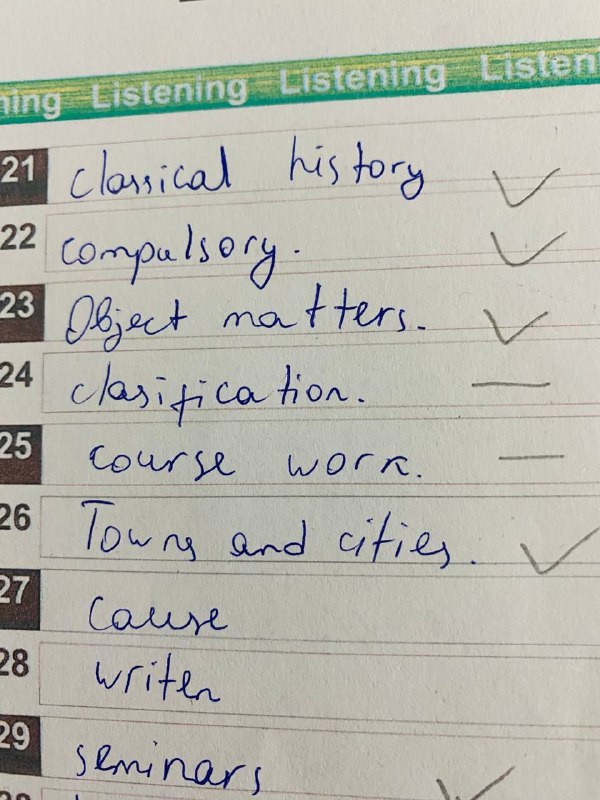 ning Listening Listening Listen
21 classical history
22 compulsory.
23 Object matters.
24 clasification.
25 course work.
26 Towns and cities.
27 cause
28 writen
29 seminars